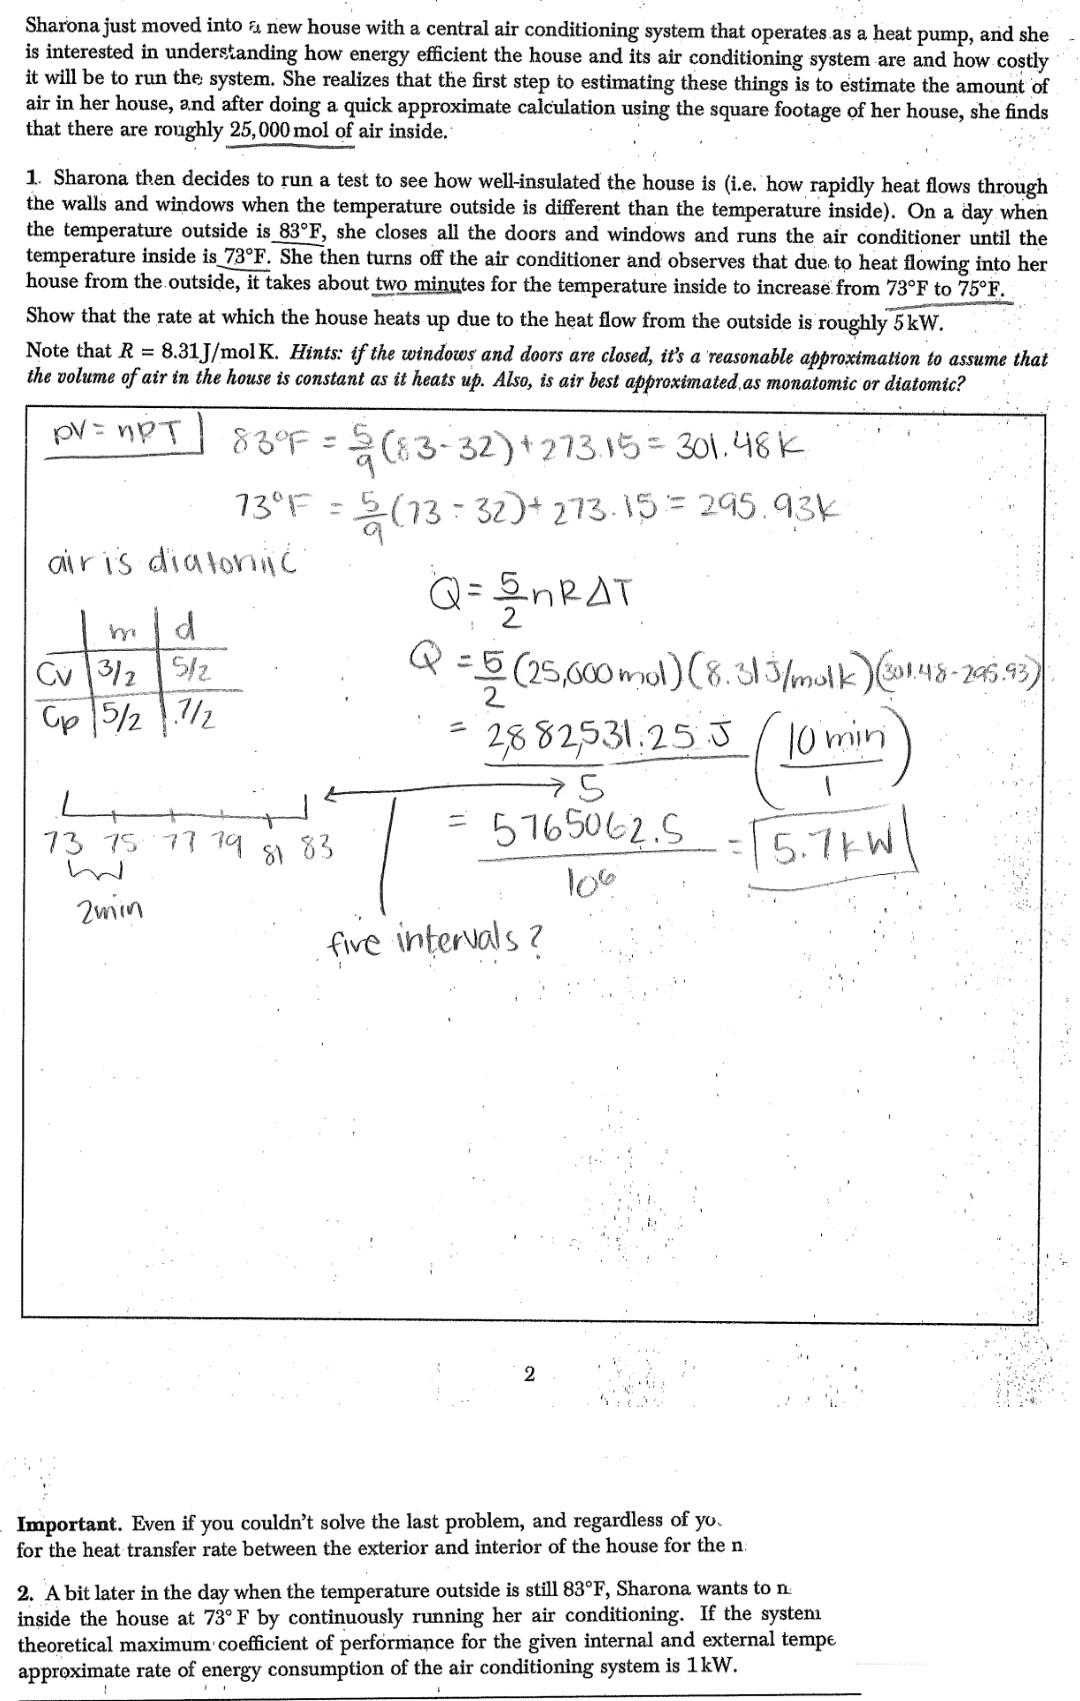 Sharona just moved into a new house with a central air conditioning system that operates as a heat pump, and she
is interested in understanding how energy efficient the house and its air conditioning system are and how costly
it will be to run the system. She realizes that the first step to estimating these things is to estimate the amount of
air in her house, and after doing a quick approximate calculation using the square footage of her house, she finds
that there are roughly 25,000 mol of air inside.
1. Sharona then decides to run a test to see how well-insulated the house is (i.e. how rapidly heat flows through
the walls and windows when the temperature outside is different than the temperature inside). On a day when
the temperature outside is 83°F, she closes all the doors and windows and runs the air conditioner until the
temperature inside is 73°F. She then turns off the air conditioner and observes that due to heat flowing into her
house from the outside, it takes about two minutes for the temperature inside to increase from 73°F to 75°F.
Show that the rate at which the house heats up due to the heat flow from the outside is roughly 5 kW.
Note that R = 8.31 J/mol K. Hints: if the windows and doors are closed, it's a reasonable approximation to assume that
the volume of air in the house is constant as it heats up. Also, is air best approximated as monatomic or diatomic?
pV = nRT
83°F = 5/9 (83-32) + 273.15 = 301.48K
73°F = 5/9 (73-32) + 273.15 = 295.93K
air is diatomic
m d
Cv 3/2 5/2
Cp 5/2 7/2
Q = 5/2 nRΔT
Q = 5/2 (25,000 mol)(8.31 J/molK)(301.48-295.93)
= 2,882,531.25 J / 5 (10 min / 1)
73 75 77 79 81 83
2min
= 5765062.5 / 10⁶ = 5.7kW
five intervals?
2
Important. Even if you couldn't solve the last problem, and regardless of
for the heat transfer rate between the exterior and interior of the house for the
2. A bit later in the day when the temperature outside is still 83°F, Sharona wants to
inside the house at 73° F by continuously running her air conditioning. If the system
theoretical maximum coefficient of performance for the given internal and external tempe
approximate rate of energy consumption of the air conditioning system is 1 kW.